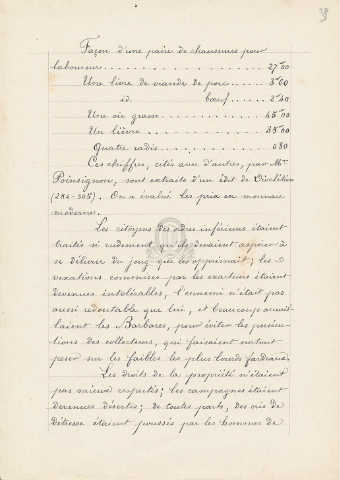 Façon d'une paire de chaussures pour
laboureurs . . . . . . . . . . 27 00
Une livre de viande de porc . . . . 3 00
id. bœuf . . . . . 2 40
Une oie grasse . . . . . . 45 00
Un lièvre . . . . . . . . 35 00
Quatre radis . . . . . . . 0 80
Ces chiffres, cités avec d'autres, par Mr
Poinsignon, sont extraits d'un édit de Dioclétien
(284-305). On a évalué les prix en monnaie
moderne.
Les citoyens des ordres inférieurs étaient
traités si rudement qu'ils devaient aspirer à
se délivrer du joug qui les opprimait; les
vexations commises par les exacteurs étaient
devenues intolérables, l'ennemi n'était pas
aussi redoutable que lui, et beaucoup accueil-
laient les Barbares, pour éviter les persécu-
tions des collecteurs, qui faisaient surtout
peser sur les faibles les plus lourds fardeaux.
Les droits de la propriété n'étaient
pas mieux respectés; les campagnes étaient
devenues désertes; de toutes parts, des cris de
détresse étaient poussés par les hommes de